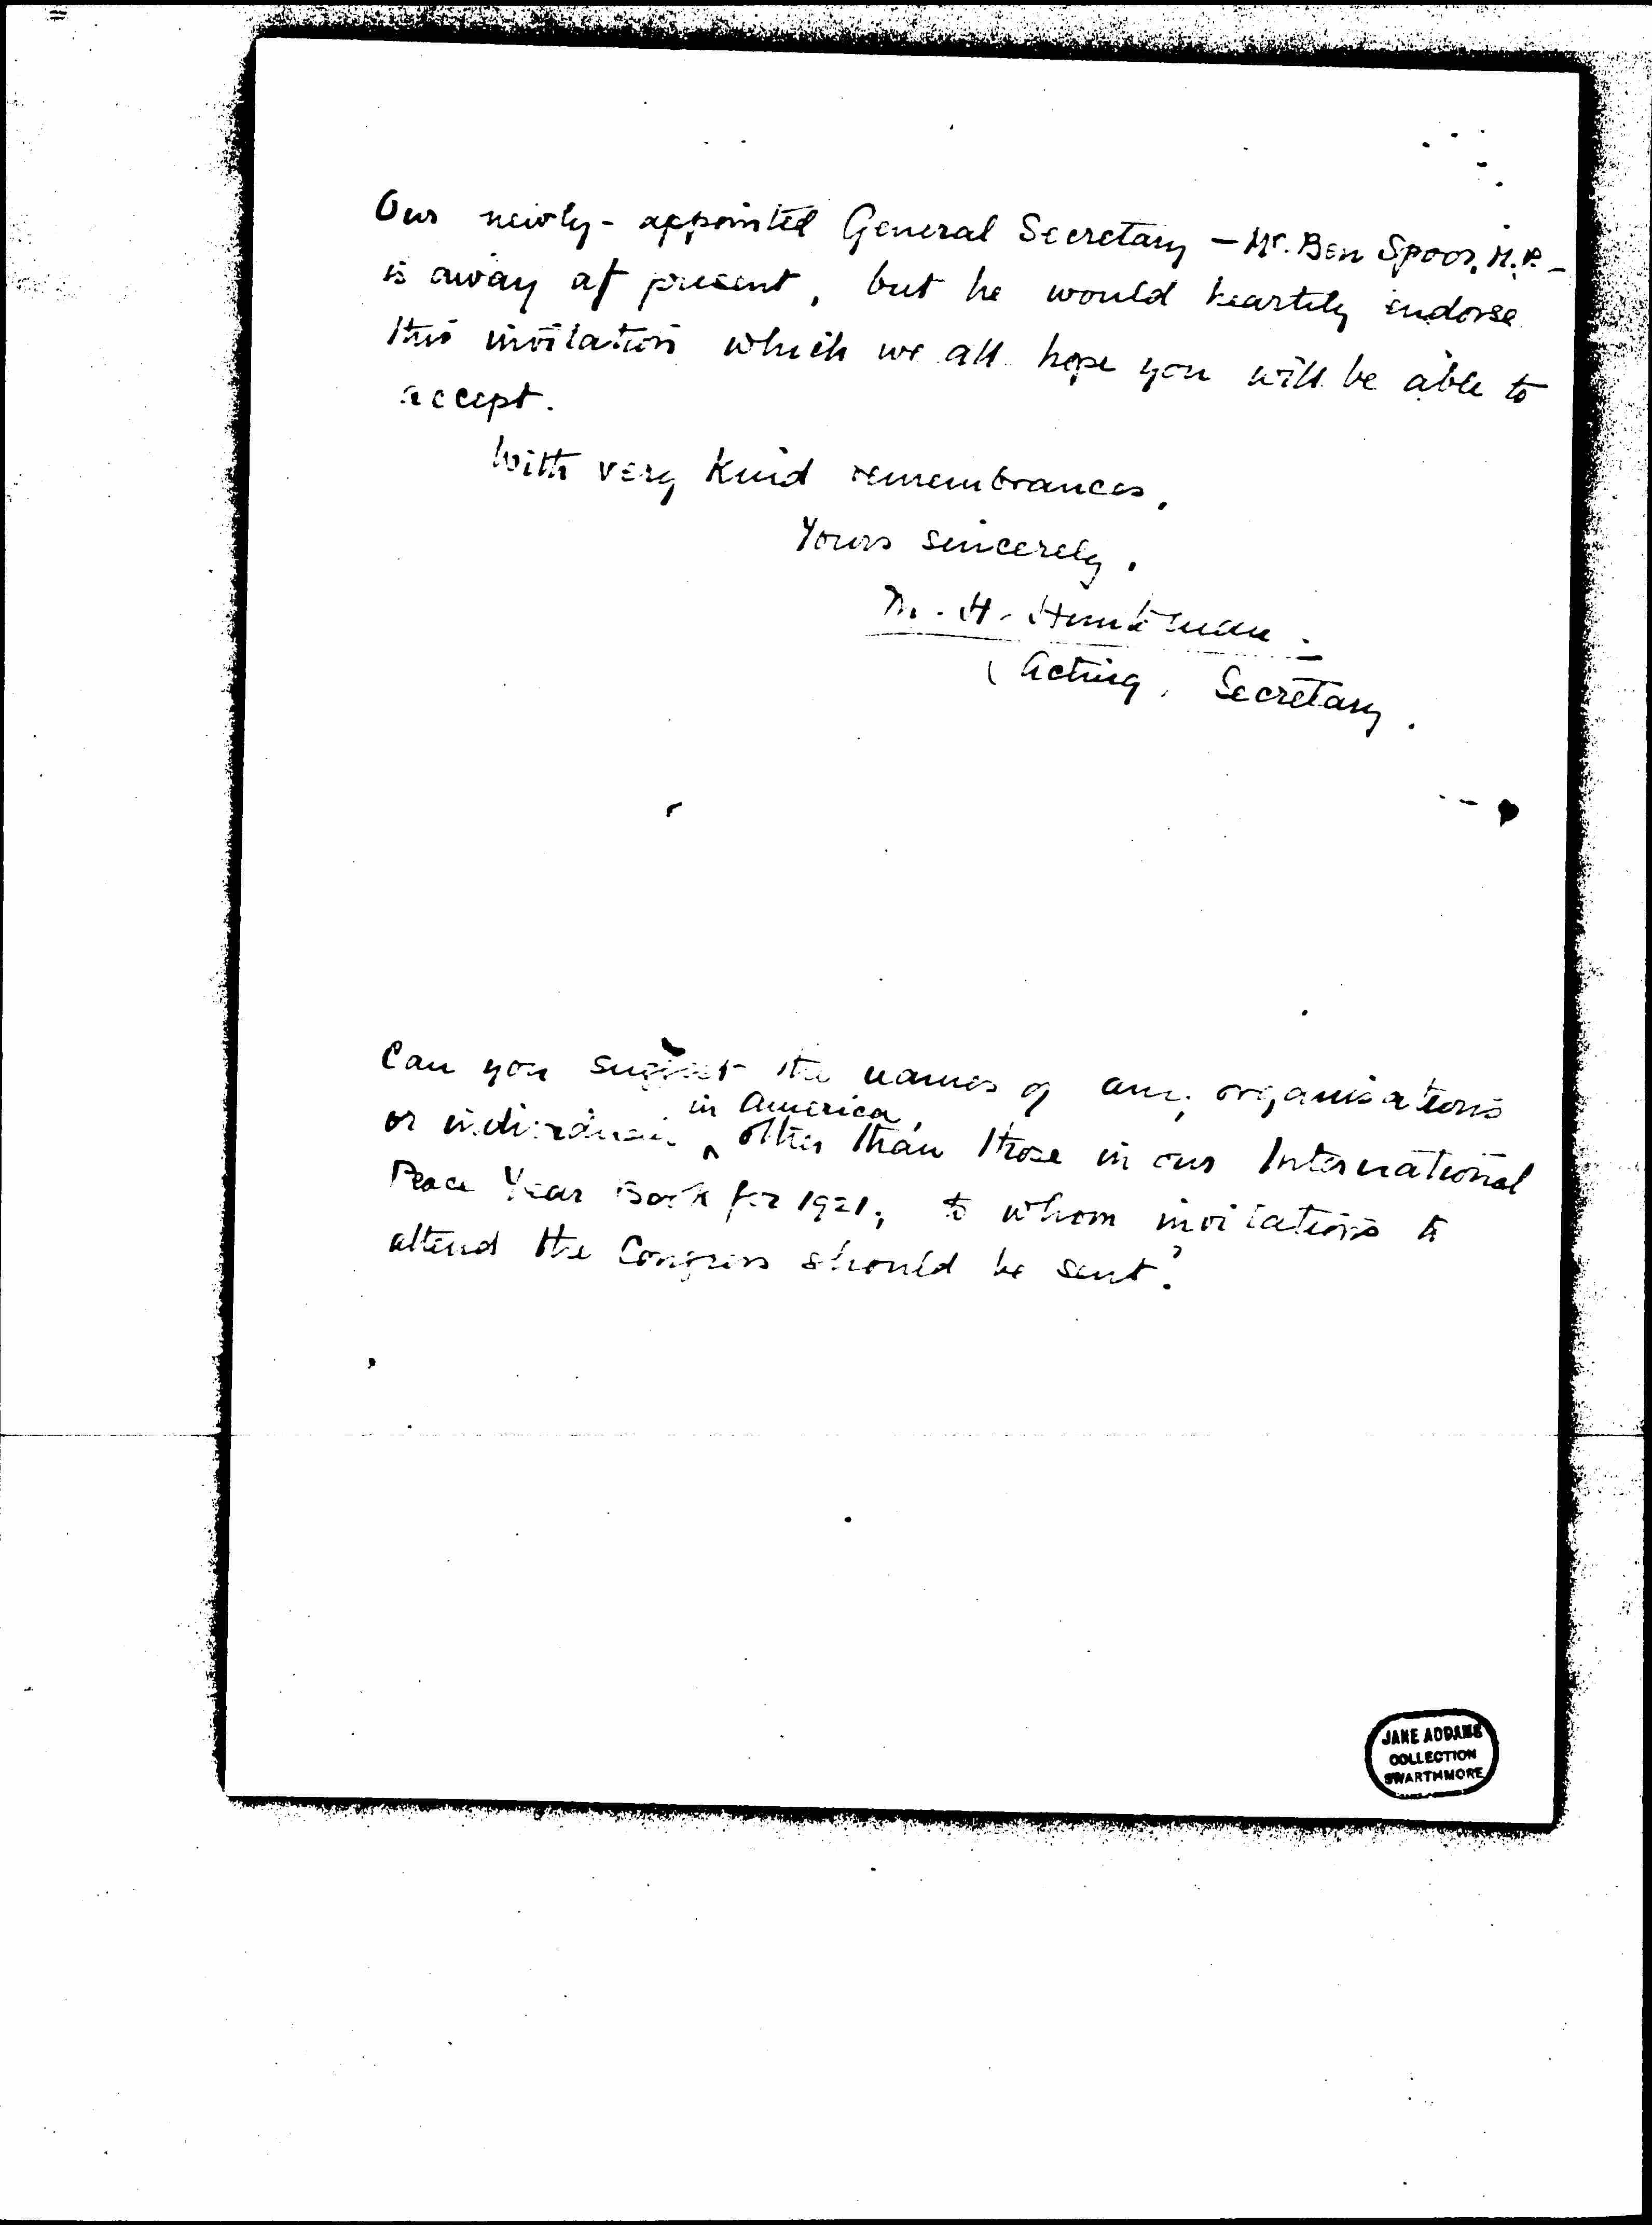 Our newly-appointed General Secretary – Mr. Ben Spoor, M.P. –
is away at present, but he would heartily endorse
this invitation which we all hope you will be able to
accept.
With very kind remembrances,
Yours sincerely,
M. H. Huntsman.
(Acting, Secretary.
Can you suggest the names of any organisations
in America,
or individuals ^ other than those in our International
Peace Year Book for 1921, to whom invitations to
attend the Congress should be sent?
JANE ADDAMS
COLLECTION
SWARTHMORE